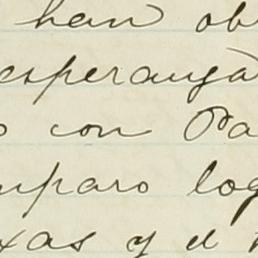 han ob
esperanza
o con Pa
mparo log
xas y el